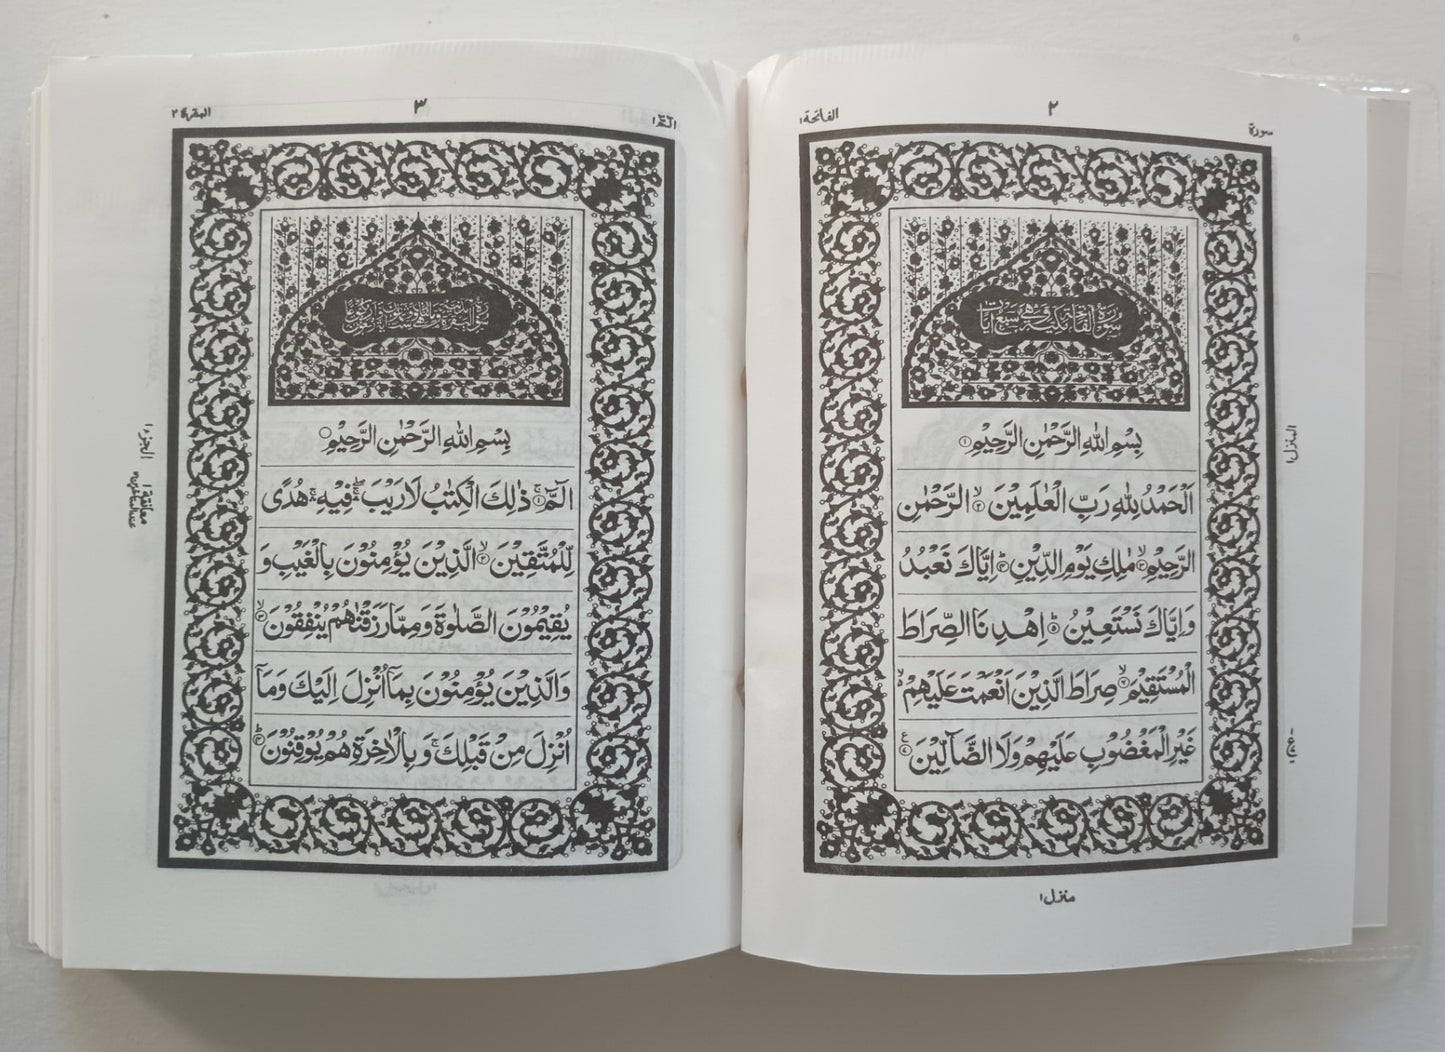 سورة
٢
الفاتحة ١
سورة الفاتحة مكية وهي سبع آيات
بِسْمِ اللّٰهِ الرَّحْمٰنِ الرَّحِيْمِ ۝١
اَلْحَمْدُ لِلّٰهِ رَبِّ الْعٰلَمِيْنَ ۙ۝٢ الرَّحْمٰنِ
الرَّحِيْمِ ۙ۝٣ مٰلِكِ يَوْمِ الدِّيْنِ ؕ۝٤ اِيَّاكَ نَعْبُدُ
وَاِيَّاكَ نَسْتَعِيْنُ ؕ۝٥ اِهْدِنَا الصِّرَاطَ
الْمُسْتَقِيْمَ ۙ۝٦ صِرَاطَ الَّذِيْنَ اَنْعَمْتَ عَلَيْهِمْ ۙ
غَيْرِ الْمَغْضُوْبِ عَلَيْهِمْ وَلَا الضَّآلِّيْنَ ۝٧
المنزل ١
منزل ١
الٓمّٓ ١
٣
البقرة ٢
بِسْمِ اللّٰهِ الرَّحْمٰنِ الرَّحِيْمِ ۝
الٓمّٓ ۚ۝١ ذٰلِكَ الْكِتٰبُ لَا رَيْبَ ۛ فِيْهِ ۛ هُدًى
لِّلْمُتَّقِيْنَ ۙ۝٢ الَّذِيْنَ يُؤْمِنُوْنَ بِالْغَيْبِ وَ
يُقِيْمُوْنَ الصَّلٰوةَ وَمِمَّا رَزَقْنٰهُمْ يُنْفِقُوْنَ ۙ۝٣
وَالَّذِيْنَ يُؤْمِنُوْنَ بِمَآ اُنْزِلَ اِلَيْكَ وَمَآ
اُنْزِلَ مِنْ قَبْلِكَ ۚ وَبِالْاٰخِرَةِ هُمْ يُوْقِنُوْنَ ؕ۝٤
الجزء ١
معانقة ١